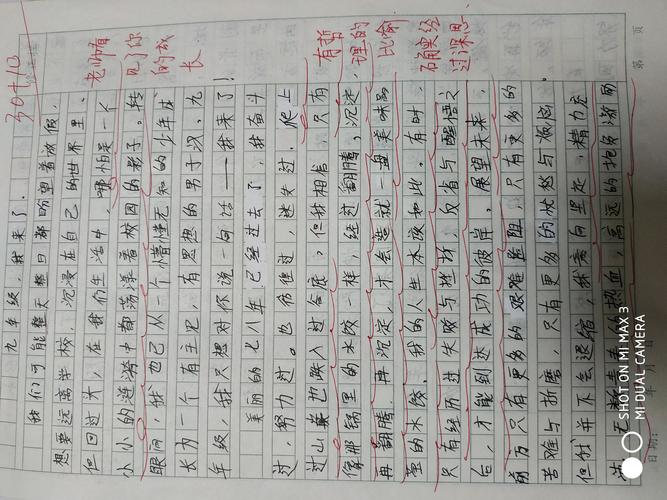 30+13
老师看
见了你
的成
长
有哲
理的
比喻
确实经
过深思
第 页
九年级，我来了
我们可能整天整日都盼望着放假，
想要远离学校，沉浸在自己的世界里。
但回过头，在我们生活中，哪怕是一个
小小的涟漪中都荡漾着校园的影子。转
眼间，我也已从一个懵懂无知的少年成
长为一个有主见、有思想的男子汉、九
年级，我只想对你说一句话——我来了！
美丽的七八年已经过去了，我奋斗
过，努力过。也彷徨过，迷失过。爬上
过山巅也跌入过谷底，但我相信，只有
像那锅里的水饺一样，经过翻腾，沉淀，
再翻腾，再沉淀，才会造就一盘美味晶
莹的水饺，我的人生本该如此。有时，
只有经历过失败与挫折，反省与醒悟之
后，才能到达成功的彼岸。展望未来，
前方只有更多的艰难险阻，只有更多的
苦难与折磨，只有更多的忧愁与
但我并不会退缩，我需向里处，精力充
沛，无数青春的热血，高远的抱负激励
日期：
SHOT ON MI MAX 3
MI DUAL CAMERA